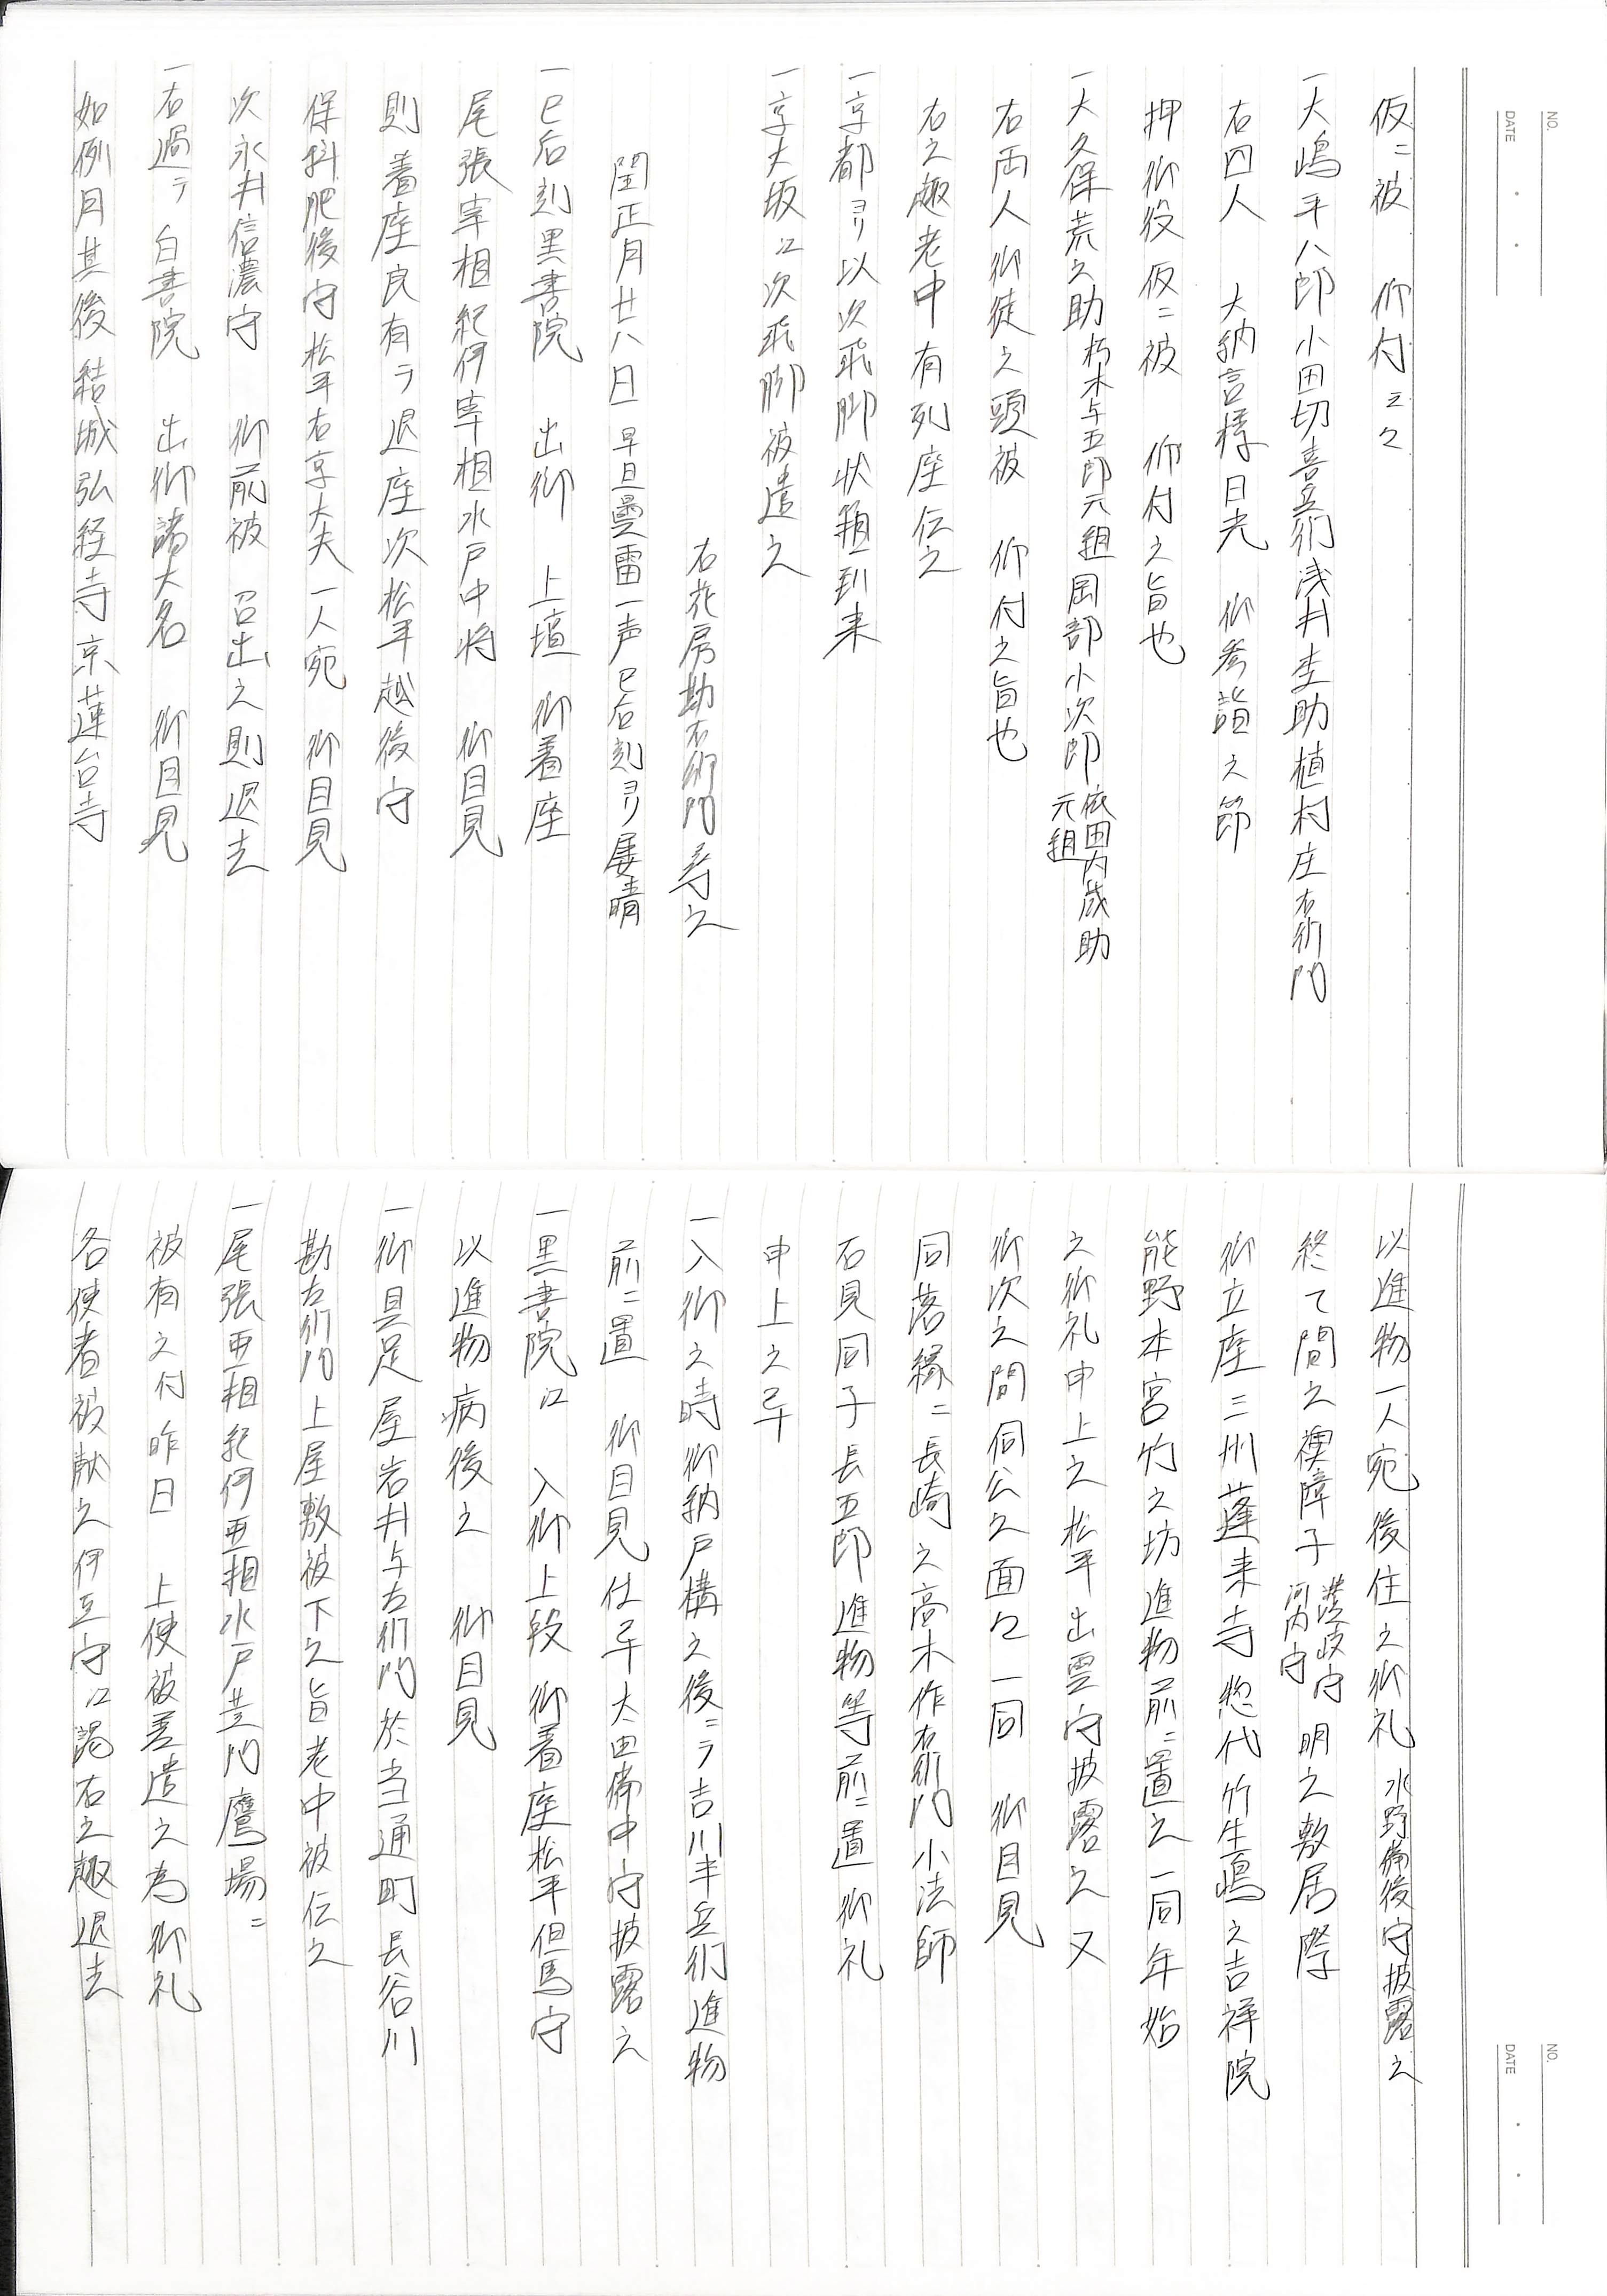 NO.
DATE
仮ニ被 仰付之々
一大嶋平八郎小田切喜兵衛浅井杢助植村庄右衛門
右四人 大納言様日光 御参詣之節
押御役仮ニ被 仰付之旨也
一大久保荒之助朽木与五郎元組岡部小次郎依田内蔵助元組
右両人御徒之頭被 仰付之旨也
右之趣老中有列座伝之
一京都ヨリ以次飛脚状箱到来
一京大坂江次飛脚被遣之
右花房勘右衛門寻之
閏正月廿八日早旦曇雷一声巳后刻ヨリ屡晴
一巳后刻黒書院 出御 上壇 御着座
尾張宰相紀伊宰相水戸中将 御目見
則着座良有テ退座次松平越後守
保科肥後守松平右京大夫一人宛 御目見
次永井信濃守 御前被 召出之則退去
一右過テ白書院 出御諸大名 御目見
如例月其後結城弘経寺京蓮台寺
NO.
DATE
以進物一人宛後住之御礼水野備後守披露之
終て間之襖障子讃岐守河内守明之敷居際
御立座三州蓬来寺惣代竹生嶋之吉祥院
能野本宮竹之坊進物前ニ置之一同年始
之御礼申上之松平出雲守披露之又
御次之間伺公之面々一同 御目見
同落縁ニ長崎之高木作右衛門小法師
石見同子長五郎進物等前ニ置御礼
申上之畢
一入御之時御納戸構之後ニテ吉川半兵衛進物
前ニ置 御目見仕畢太田備中守披露之
一黒書院江 入御上段御着座松平但馬守
以進物病後之 御目見
一御具足屋岩井与左衛門於当通町長谷川
勘左衛門上屋敷被下之旨老中被伝之
一尾張亜相紀伊亜相水戸黄門鷹場ニ
被有之付昨日 上使被差遣之為御礼
各使者被献之伊豆守江謁右之趣退去